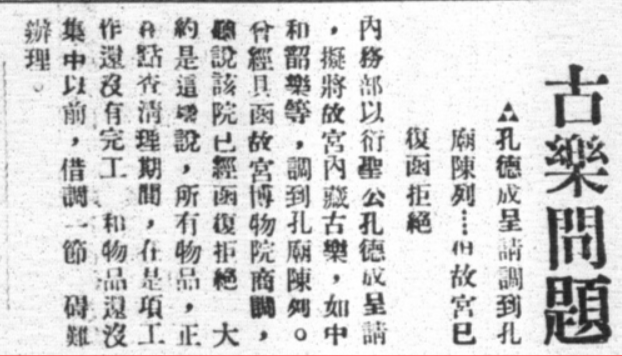 古樂問題
▲孔德成呈請調到孔
廟陳列…但故宮已
復函拒絕
內務部以衍聖公孔德成呈請
,擬將故宮內藏古樂,如中
和韶樂等,調到孔廟陳列。
曾經具函故宮博物院商調,
聽說該院已經函復拒絕 大
約是這樣說,所有物品,正
在點查清理期間,在是項工
作還沒有完工 和物品還沒
集中以前,借調一節 碍難
辦理。